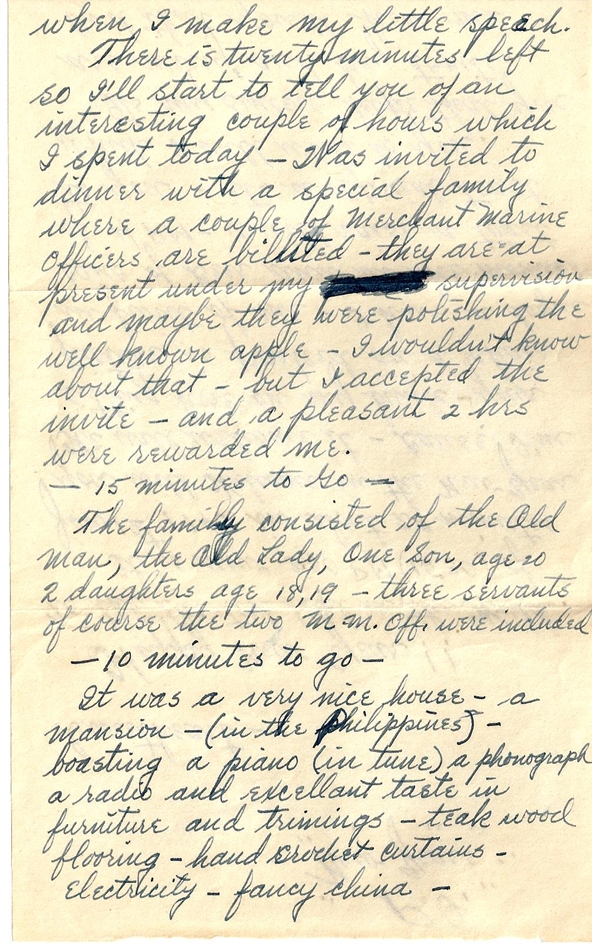 when I make my little speech.
There is twenty minutes left
so I'll start to tell you of an
interesting couple of hours which
I spent today - Was invited to
dinner with a special family
where a couple of Merchant Marine
Officers are billited - they are at
present under my supervision
and maybe they were polishing the
well known apple - I wouldn't know
about that - but I accepted the
invite - and a pleasant 2 hrs
were rewarded me.
- 15 minutes to go -
The family consisted of the Old
man, the Old Lady, One Son, age 20
2 daughters age 18, 19 - three servants
of course the two M.M. Off. were included
- 10 minutes to go -
It was a very nice house - a
mansion - (in the Philippines) -
boasting a piano (in tune) a phonograph
a radio and excellant taste in
furniture and trimings - teak wood
flooring - hand crochet curtains -
Electricity - fancy china -